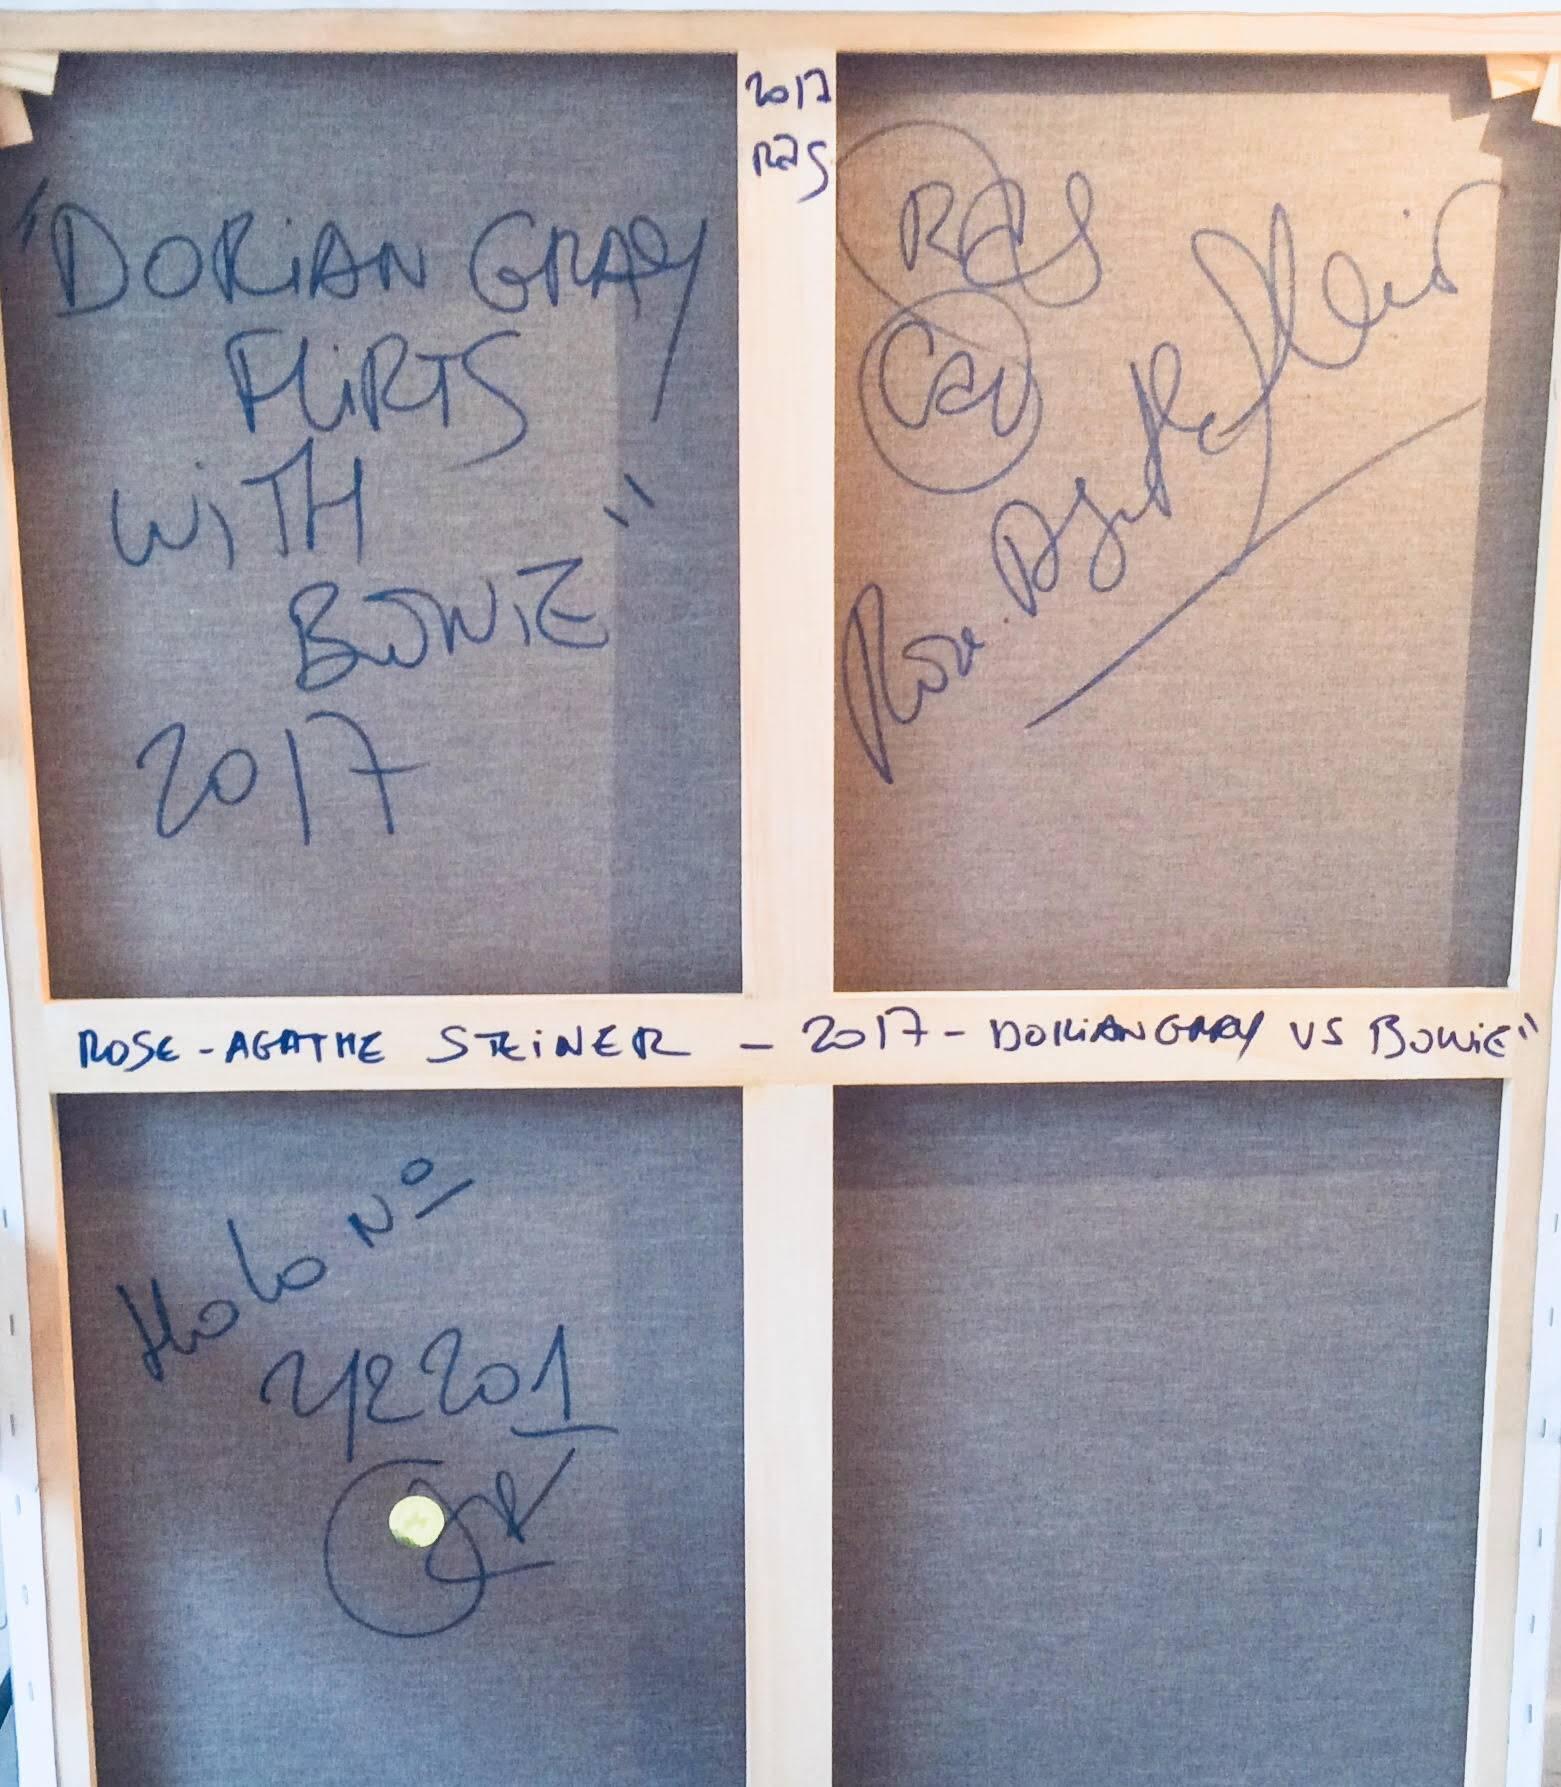 "DORiAN GRAY
FLiRTS
WiTH
BOWiE"
2017
2017
RAS
RAS
Rose-Agathe Steiner
ROSE-AGATHE STEiNER - 2017 - DORiAN GRAY VS BOWiE"
Holo Nº